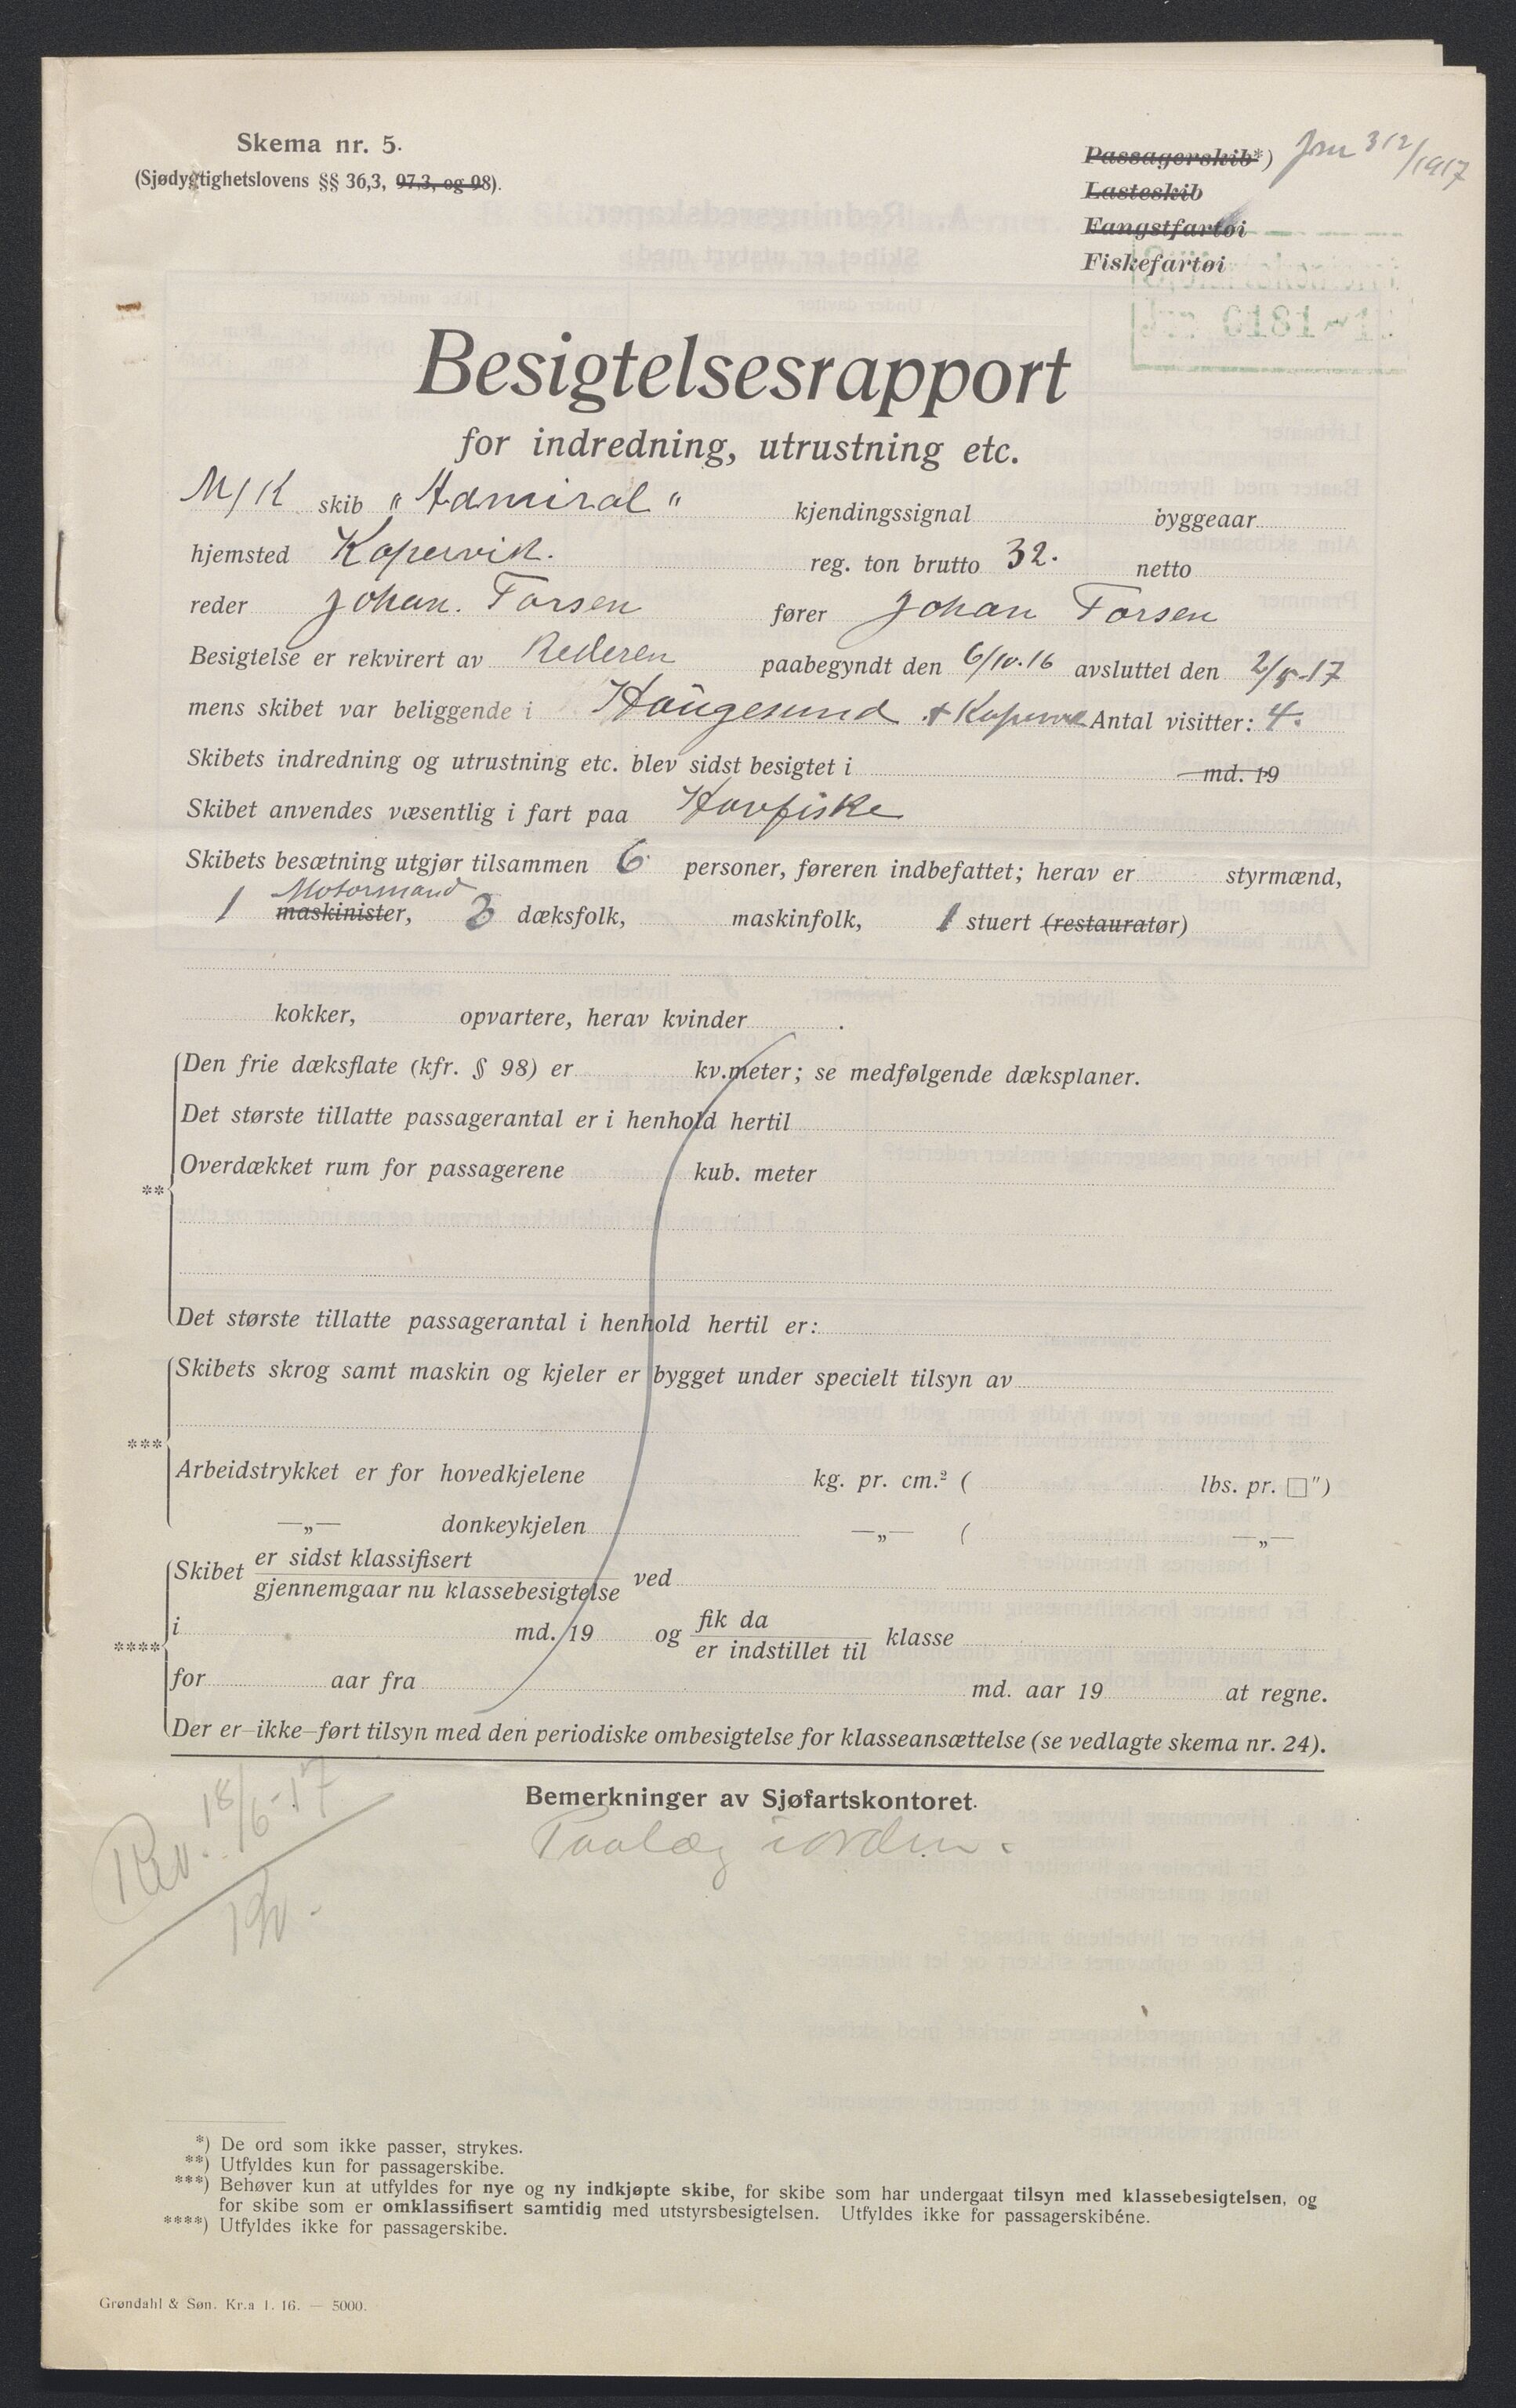 Skema nr. 5.
(Sjødygtighetslovens §§ 36,3, 97,3, og 98).
Passagerskib*)
Jnr 312/1917
Lasteskib
Fangstfartøi
Fiskefartøi
Jnr 0181-1
Besigtelsesrapport
for indredning, utrustning etc.
M/K skib "Admiral" kjendingssignal byggeaar
hjemsted Kopervik. reg. ton brutto 32. netto
reder Johan. Torsen fører Johan Torsen
Besigtelse er rekvirert av Rederen paabegyndt den 6/10.16 avsluttet den 2/5-17
mens skibet var beliggende i Haugesund + Kopervik Antal visitter: 4.
Skibets indredning og utrustning etc. blev sidst besigtet i md. 19
Skibet anvendes væsentlig i fart paa Havfiske
Skibets besætning utgjør tilsammen 6 personer, føreren indbefattet; herav er styrmænd,
Motormand
1 maskinister, 3 dæksfolk, maskinfolk, 1 stuert (restauratør)
kokker, opvartere, herav kvinder .
Den frie dæksflate (kfr. § 98) er kv.meter; se medfølgende dæksplaner.
Det største tillatte passagerantal er i henhold hertil
Overdækket rum for passagerene kub. meter
**
Det største tillatte passagerantal i henhold hertil er:
Skibets skrog samt maskin og kjeler er bygget under specielt tilsyn av
***
Arbeidstrykket er for hovedkjelene kg. pr. cm.² ( lbs. pr. □")
—„— donkeykjelen —„— ( —„—
Skibet er sidst klassifisert
gjennemgaar nu klassebesigtelse ved
i md. 19 og fik da
er indstillet til klasse
****
for aar fra md. aar 19 at regne.
Der er—ikke—ført tilsyn med den periodiske ombesigtelse for klasseansættelse (se vedlagte skema nr. 24).
Bemerkninger av Sjøfartskontoret.
Rev. 18/6-17
Paalæg iorden.
*) De ord som ikke passer, strykes.
**) Utfyldes kun for passagerskibe.
***) Behøver kun at utfyldes for nye og ny indkjøpte skibe, for skibe som har undergaat tilsyn med klassebesigtelsen, og
for skibe som er omklassifisert samtidig med utstyrsbesigtelsen. Utfyldes ikke for passagerskibéne.
****) Utfyldes ikke for passagerskibe.
Grøndahl & Søn. Kr.a 1. 16. — 5000.